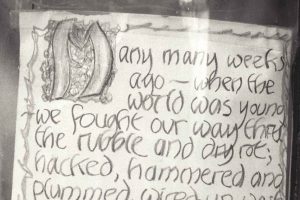 Many many weeks
ago – when the
world was young
we fought our way thru
the rubble and dry rot,
hacked, hammered and
plummed, wired up